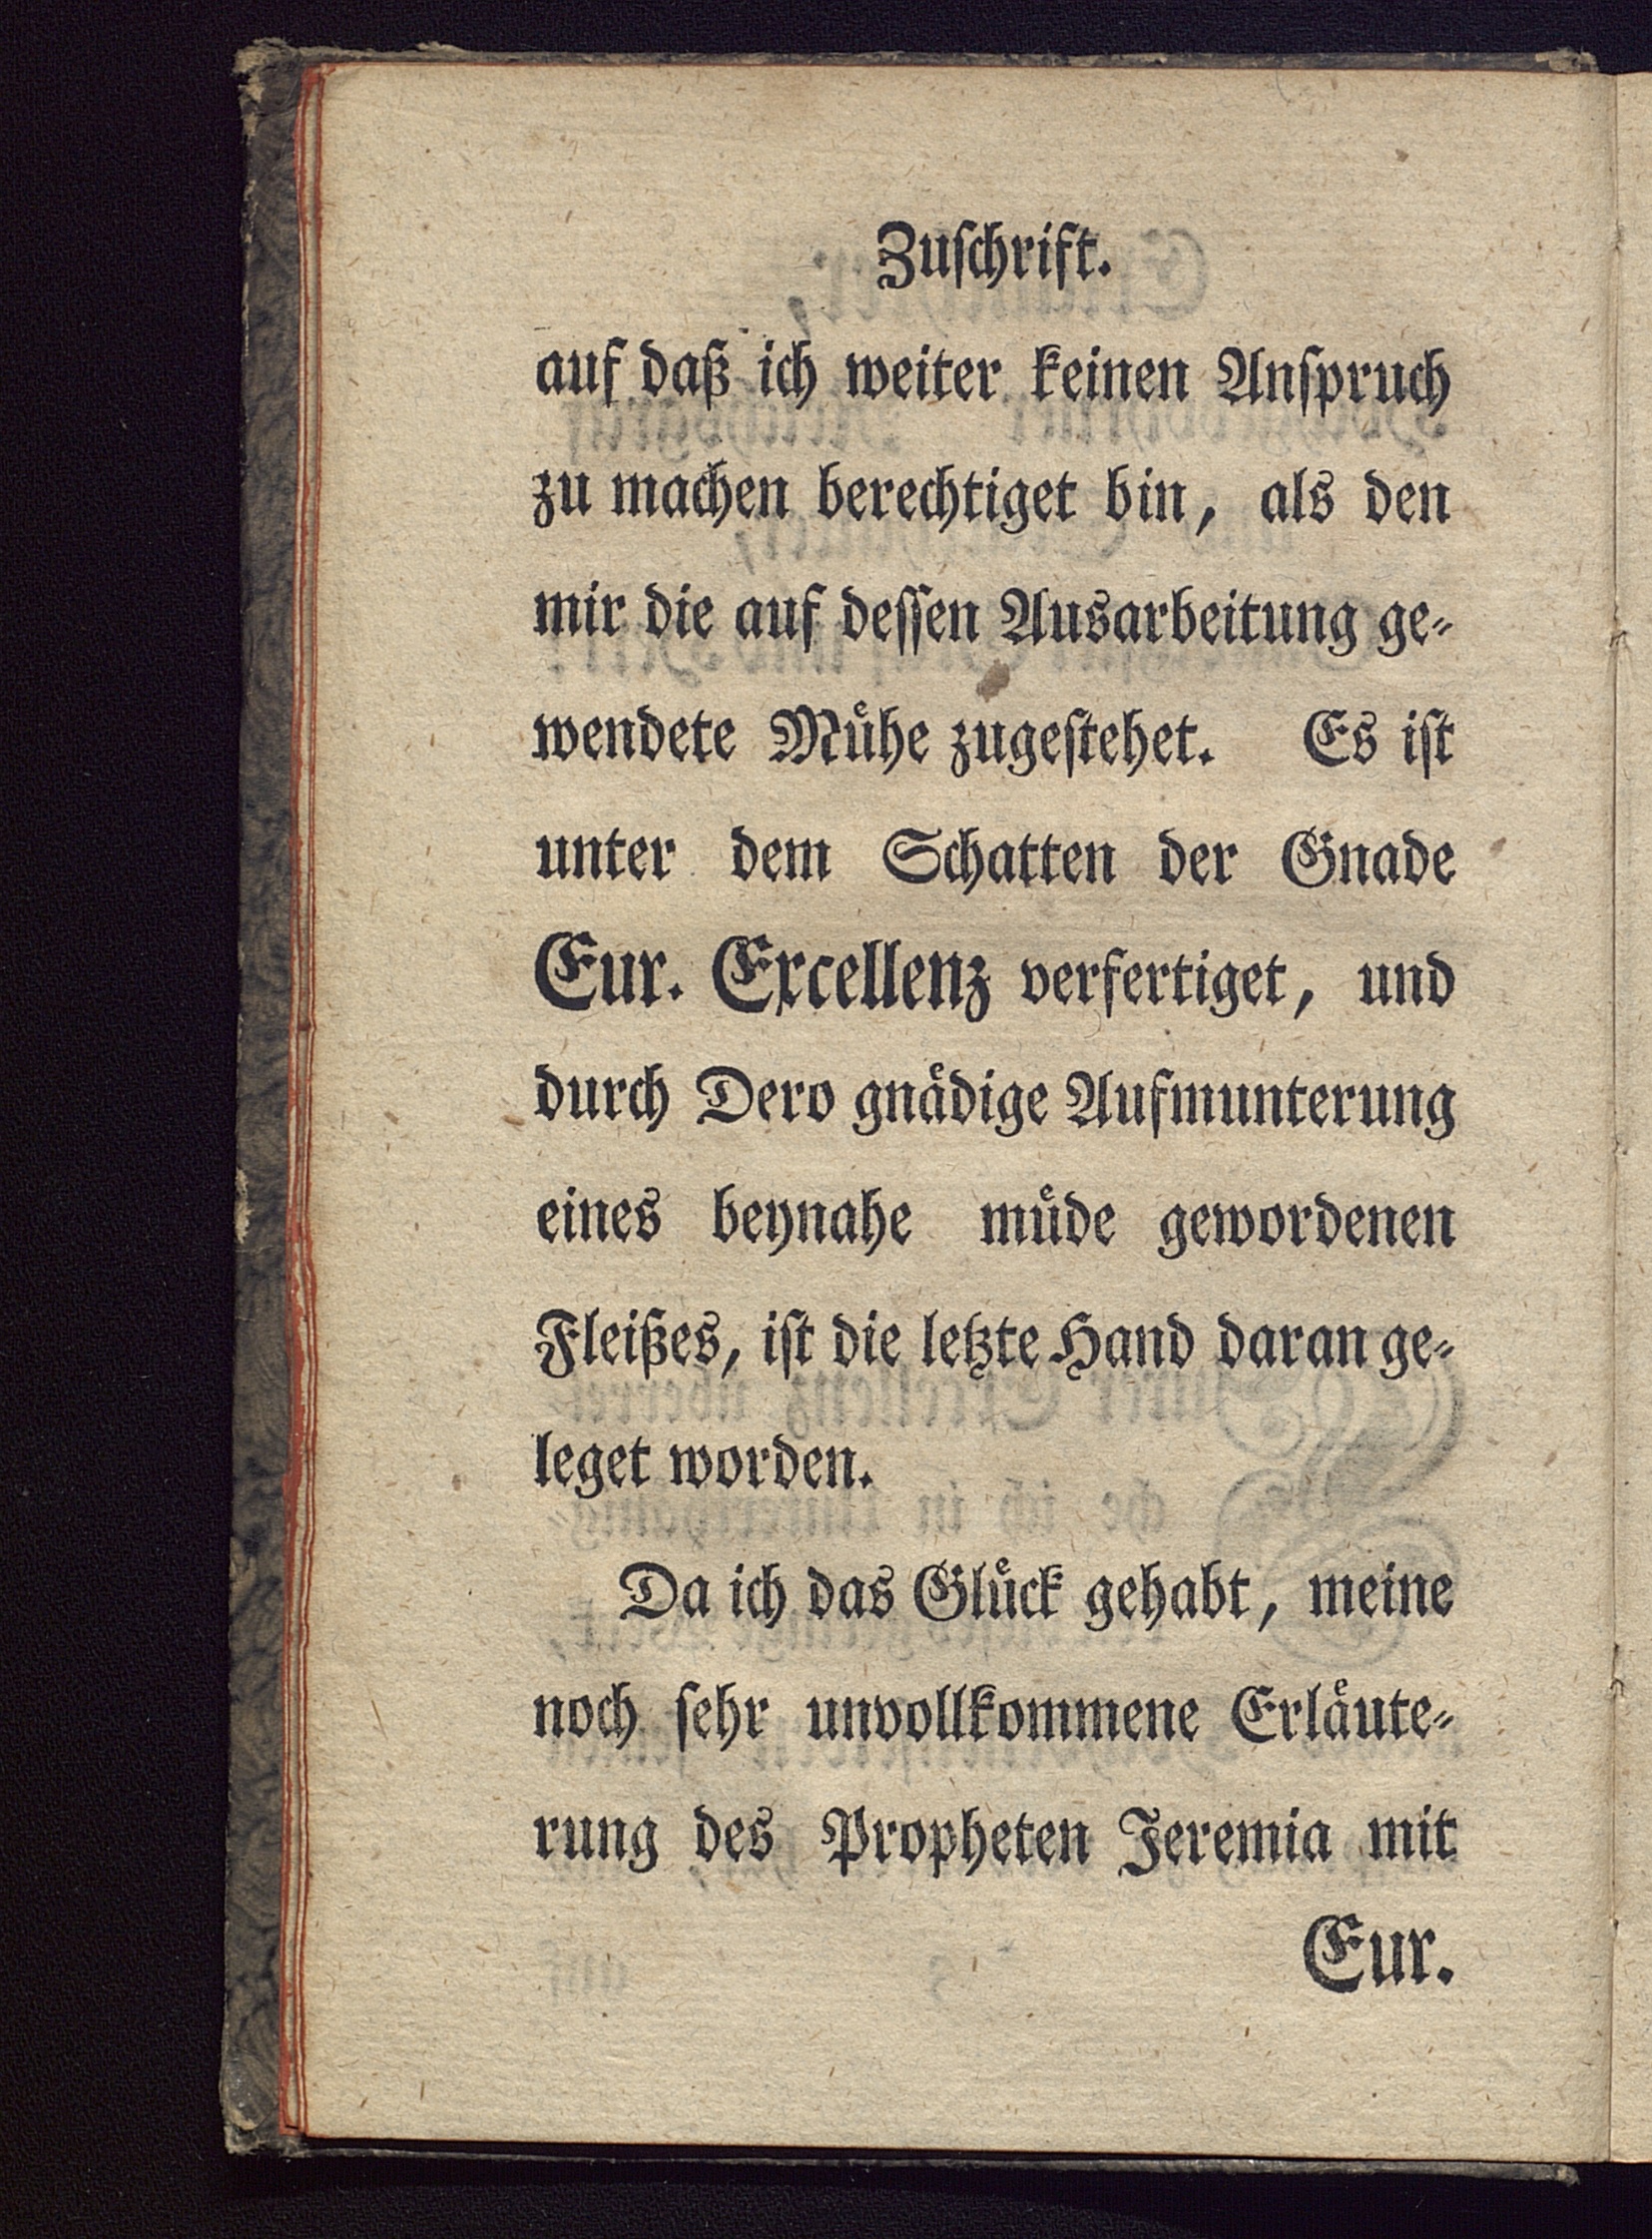 Zuſchrift.
auf daß ich weiter keinen Anſpruch
zu machen berechtiget bin, als den
mir die auf deſſen Ausarbeitung ge⸗
wendete Muͤhe zugeſtehet. Es iſt
unter dem Schatten der Gnade
Eur. Excellenz verfertiget, und
durch Dero gnaͤdige Aufmunterung
eines beynahe muͤde gewordenen
Fleißes, iſt die letzte Hand daran ge⸗
leget worden.
Da ich das Gluͤck gehabt, meine
noch ſehr unvollkommene Erlaͤute⸗
rung des Propheten Jeremia mit
Eur.